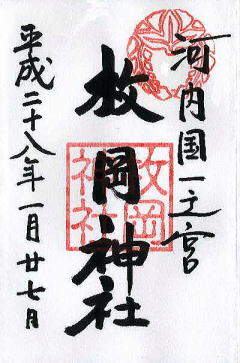 河内国一之宮
枚岡神社
平成二十八年一月廿七月
枚岡
神社